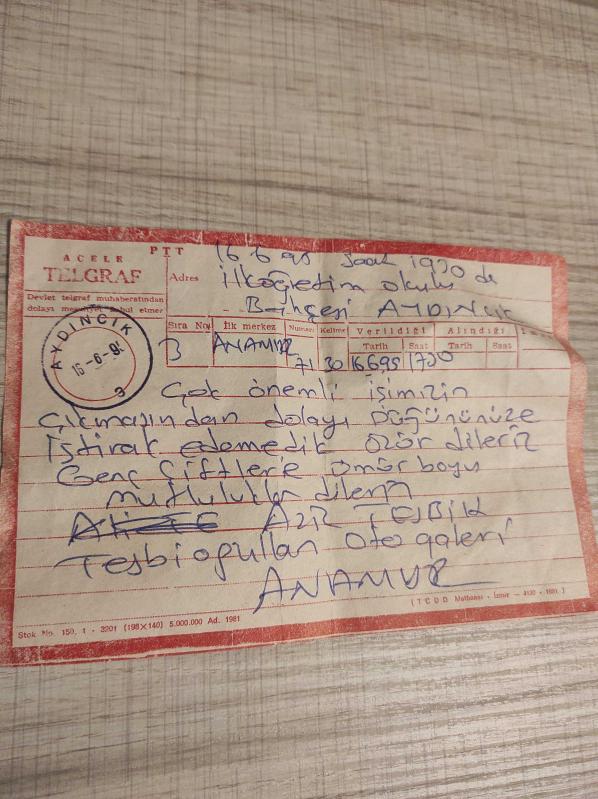 ACELE PTT
TELGRAF
Devlet telgraf muhaberatından
dolayı mesuliyet kabul etmez
Adres
16.6.95 saat 1930 da
İlköğretim okulu
Bahçesi AYDINCIK
Sıra No İlk merkez Numara Kelime Verildiği Alındığı
Tarih Saat Tarih Saat
3 ANAMUR 71 30 16695 1730
AYDINCIK
16-6-95
3
Çok önemli işimizin
çıkmasından dolayı Düğününüze
İştirak edemedik özür dileriz
Genç Çiftlere ömür boyu
mutluluklar dileriz
Aziz TESBİH
Tesbioğulları oto galeri
ANAMUR
Stok No. 150. 1 - 3201 (198×140) 5.000.000 Ad. 1981
(TCDD Matbaası - İzmir - 4130 - 1981)